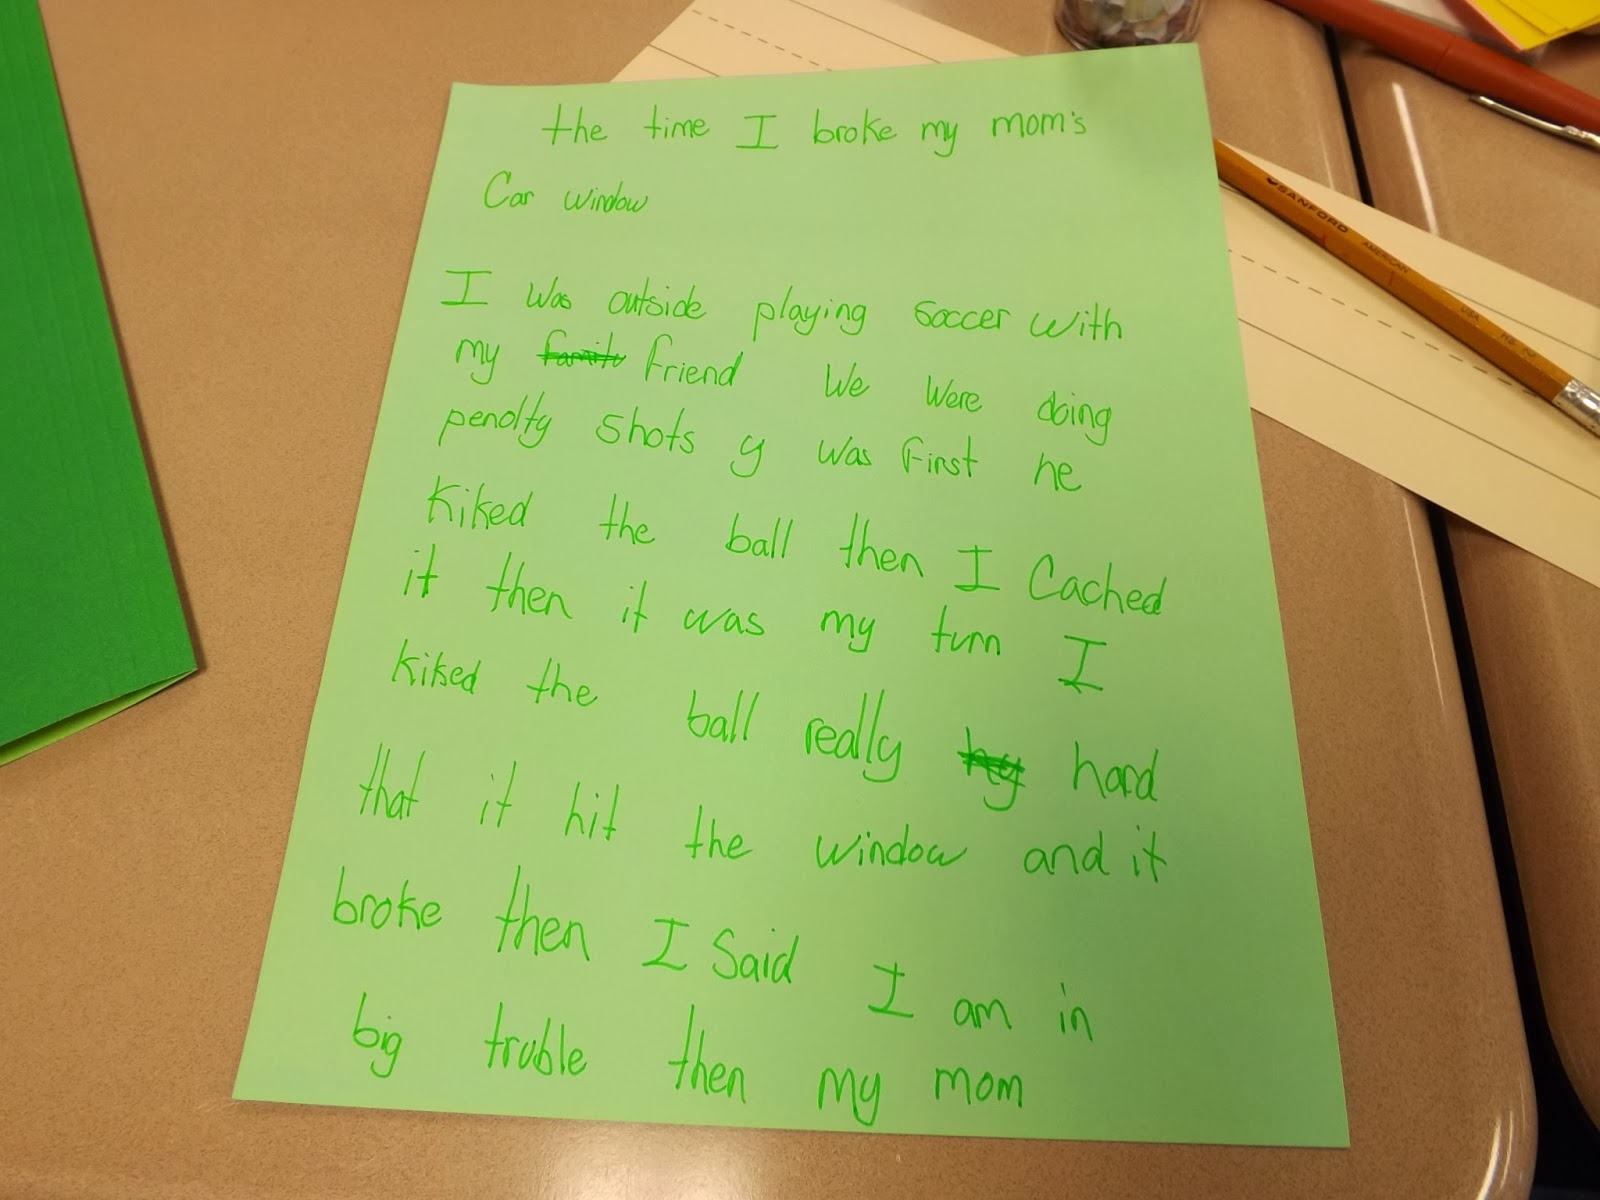 the time I broke my mom's
Car window
I was outside playing soccer with
my family friend We were doing
penolty shots y was first he
kiked the ball then I Cached
it then it was my turn I
kiked the ball really hard
that it hit the window and it
broke then I Said I am in
big truble then my mom
SANFORD AMERICAN USA